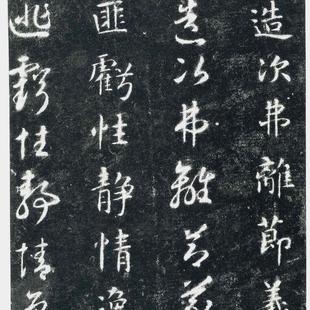 造次弗離節義
造次弗離節義
匪虧性靜情逸
匪虧性靜情逸